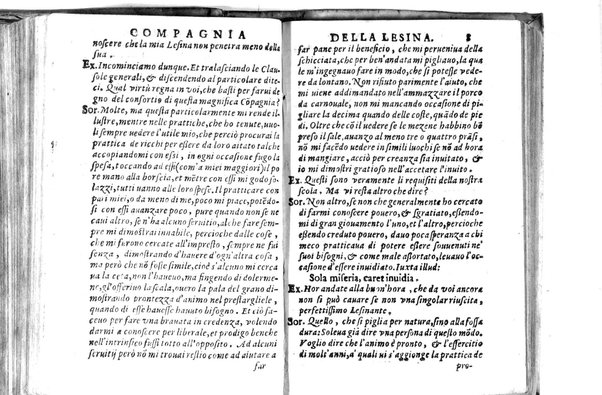 COMPAGNIA
noscere che la mia Lesina non penetra meno della
sua.
Ex. Incominciamo dunque. Et tralasciando le Clau-
sole generali, & discendendo al particolare dite-
ci. Qual virtù regna in voi, che basti per farui de
gno del consortio di questa magnifica Cōpagnia?
Sor. Molte, ma questa particolarmente mi rende il-
lustre, mentre nelle prattiche, che ho tenute, uuo-
li sempre vedere l'utile mio, che perciò procurai la
prattica de ricchi per essere da loro aitato talche
accoptandomi con essi, in ogni occasione fugo la
spesa, toccando ad essi (com'a miei maggiori) il po
rre mano alla borscia, et metre cō essi mi godo so-
lazzi, tutti nanno alle loro spese. Il pratticare con
pari miei, o da meno di me, poco mi piace, potēdo-
si con essi auanzare poco, pure quando occorreua
ne cauai alcuno seruitio, alche fare sem-
pre mi dimostrai innabile, percioche dalle cose,
che mi furono cercate all'imprestto, sempre ne fui
senza, dimostrando d'hauere d'ogn'altra cosa,
ma però che nō fosse simile, cioè s'alcuno mi cerca
ua letto, non l'haueuo, ma fingendo di dolerme-
ne, gl'offeriuo la scala, ouero la pala del grano di-
mostrando prontezza d'animo nel prestargliele,
quando di esse hauesse hauuto bisogno. Et ciò fa-
ceuo per fare vna brauata in credenza, volendo
darmi a conoscere per liberale, et prodigo benche
nell'intrinsico fussi totto all'opposito. Ad alcuni
seruitij però nō mi trouai restio come ad aiutare a
far
DELLA LESINA. 8
far pane per il beneficio, che mi perueniua della
schiecciata, che per ben'andata mi pigliano, la qua
le m'ingegnauo fare in modo, che si potesse vede-
re da lontano. Non risiuto parimente l'aiuto, che
mi viene addimandato nell'ammazzare il porco
da carnouale, non mi mancando occasione di pi-
gliare la decima quando delle coste, quādo de pie
di. Oltre che cō il vedere se le mezene habbino bē
preso il sale, auanzo sempre da tre o quattro pasti,
nō mi facēdo uedere in simili luochi se nō ad hora
di mangiare, acciò per creanza sia inuitato, &
io mi dimostri gratioso nell'accetare l'inuito.
Ex. Questi sono veramente li requisiti della nostra
scola. Ma vi resta altro che dire?
Sor. Non altro, se non che generalmente ho cercato
di farmi conoscere pouero, & sgratiato, essendo-
mi di gran giouamento l'uno, et l'altro, percioche
essēdo creduto pouero, dauo poca speranza a chi
meco pratticaua di potere essere souuenuti ne'
suoi bisogni, & come male assortato, leuauo l'oc-
casione d'essere inuidiato. Iuxta illud:
Sola miseria, caret inuidia.
Ex. Hor andate alla buon'hora, che da voi ancora
non si può cauare se non vna singolar riuscita,
perfettissimo Lesinante.
Sor. Quello, che si piglia per natura, sino alla fossa
dura: Soleua già dire vna persona di questo modo.
Voglio dire che l'animo è pronto, & l'essercitio
di molt'anni, a' quali ui s'aggionge la prattica de
pro-